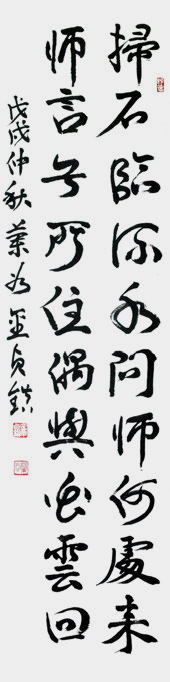 掃石臨流水問師何處來
師言無所住偶與白雲回
戊戌仲秋葉為